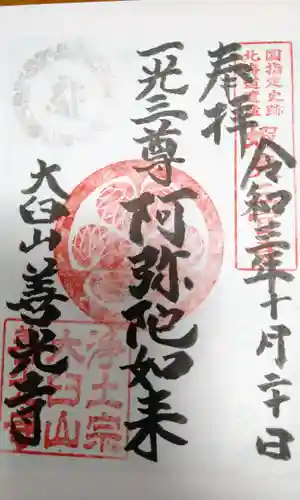 国指定史跡
北海道遺産
奉拝
令和三年十月二十日
一光三尊阿弥陀如来
大臼山善光寺
浄土宗
大臼山
善光寺